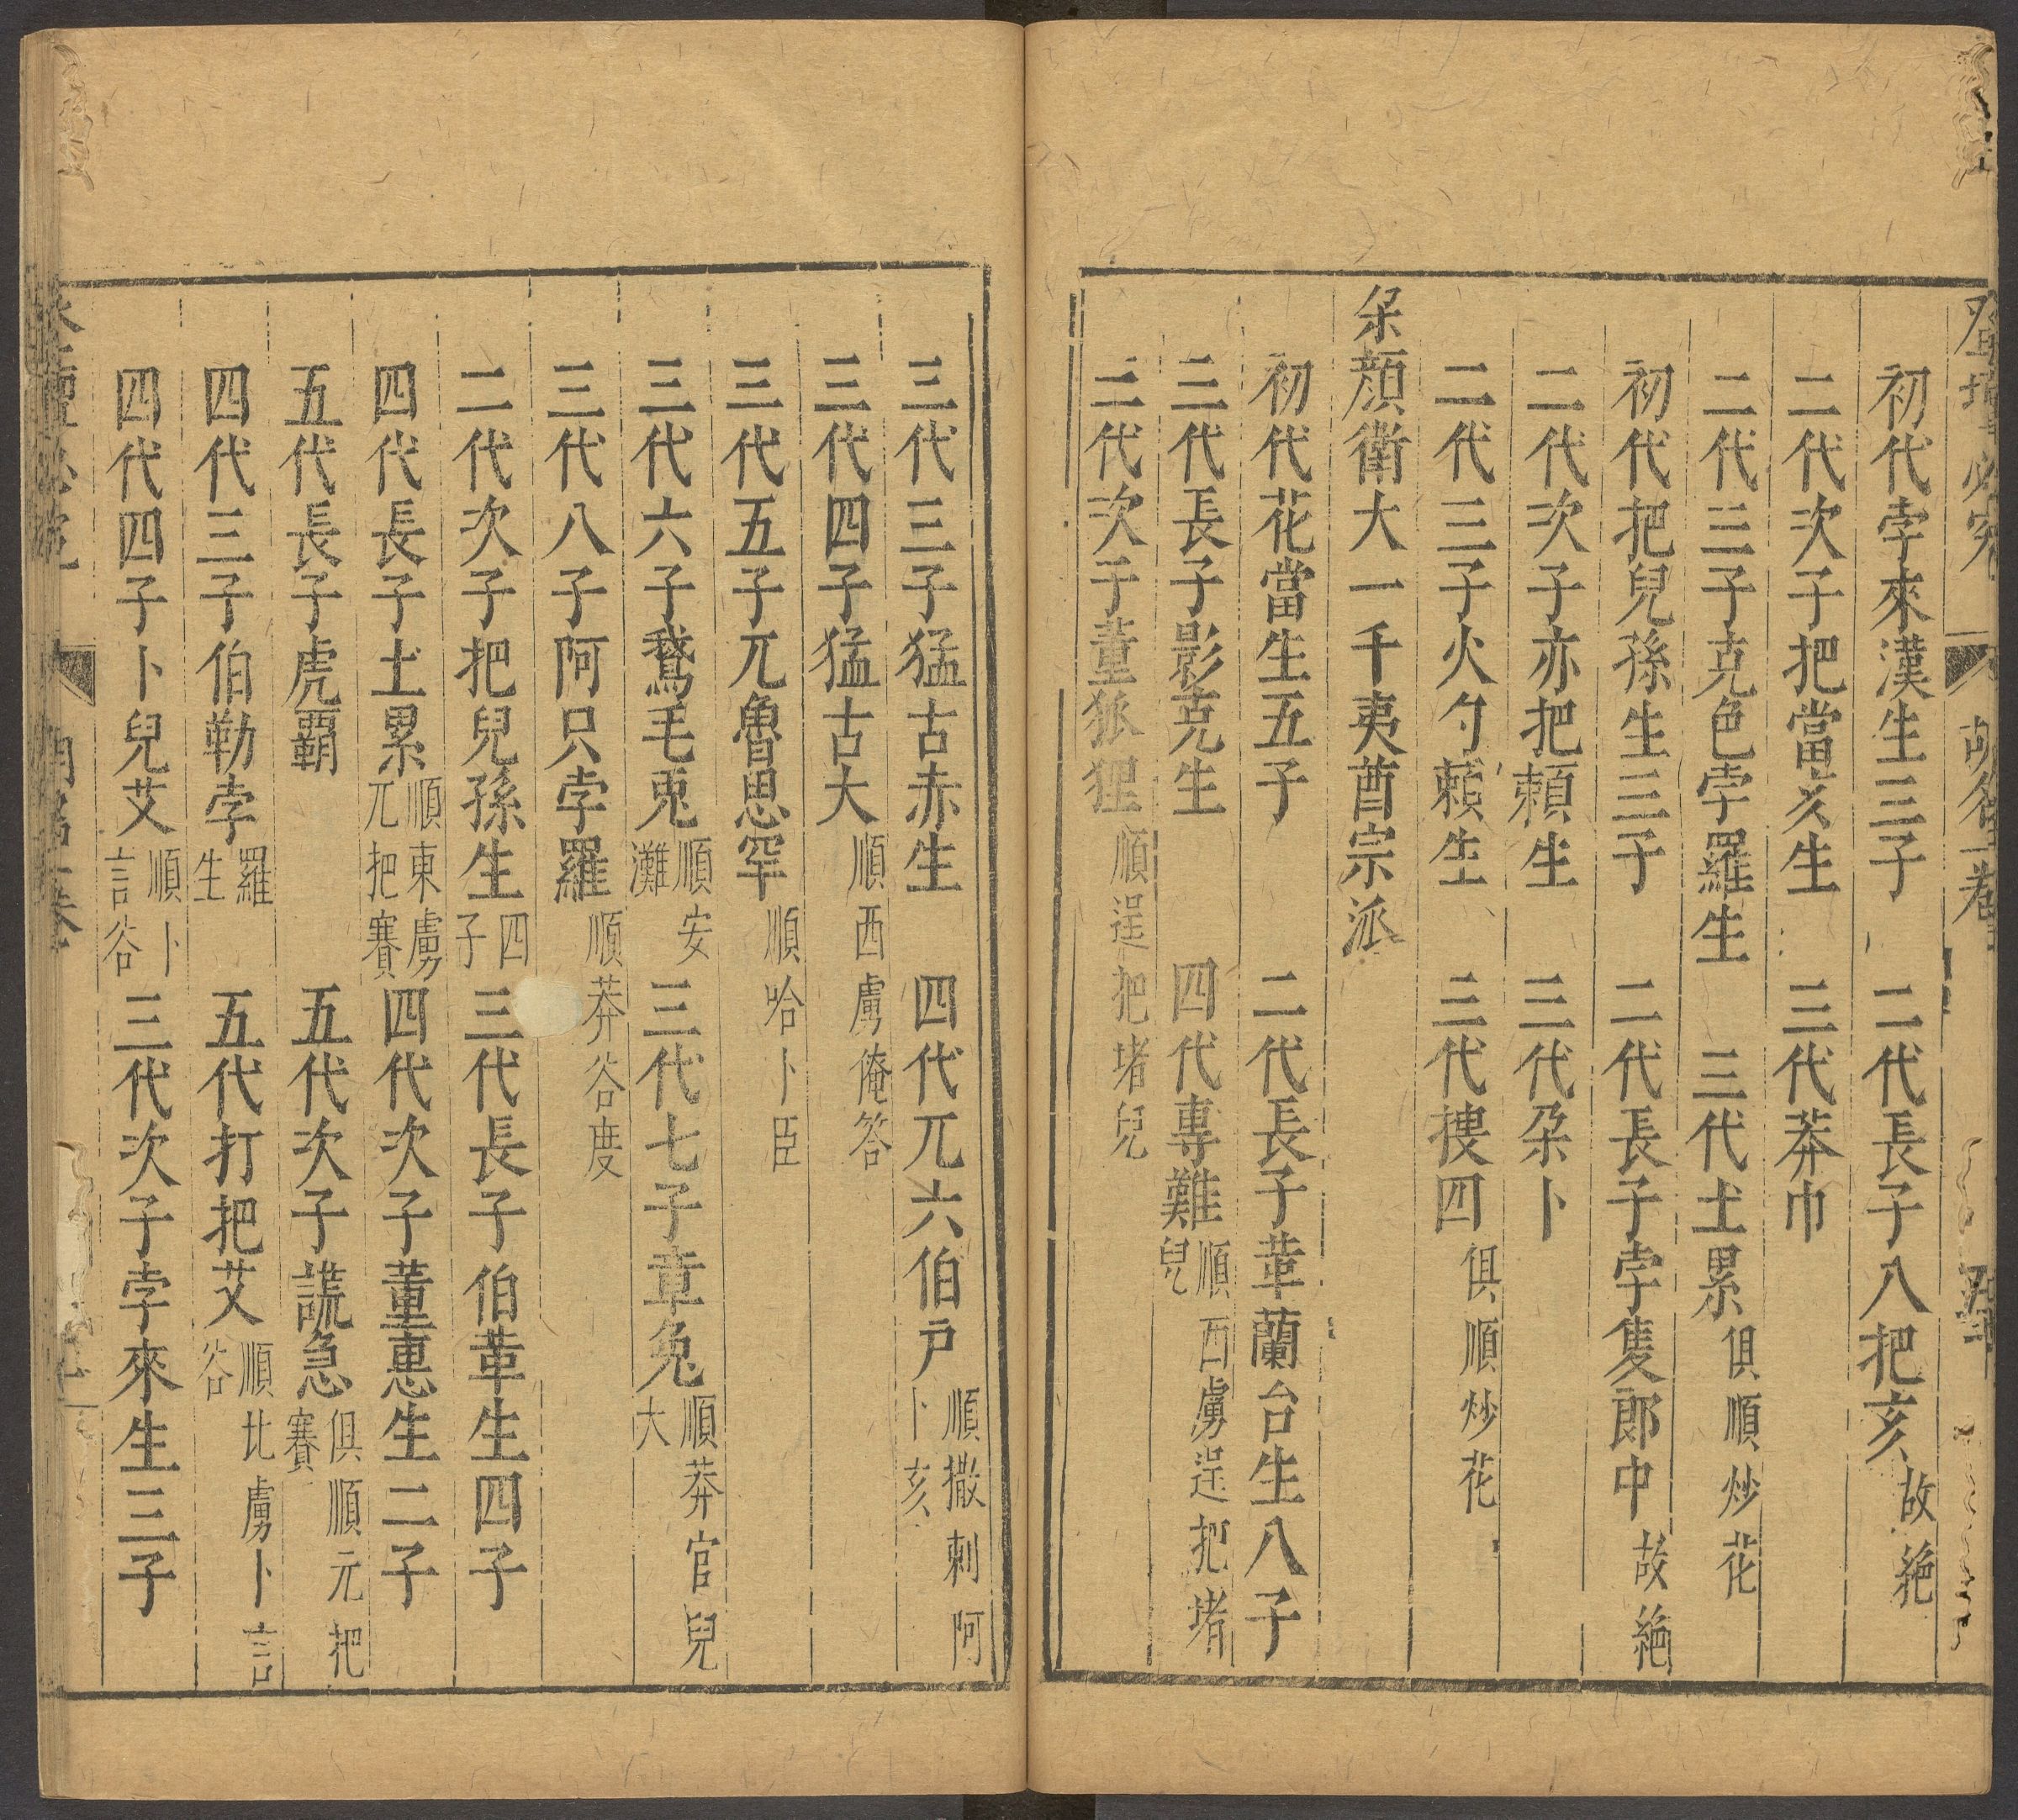 初代孛來漢生三子　二代長子八把亥故絶
二代次子把當亥生　三代莽巾
二代三子克色孛羅生　三代土累俱順炒花
初代把兒孫生三子　二代長子孛隻郎中故絶
二代次子亦把頼生　三代朶卜
二代三子火勺賴生　三代摟四俱順炒花
朶顔衛大一千夷酋宗派
初代花當生五子　二代長子革蘭台生八子
三代長子影克生　四代專難順西虜逞把堵兒
三代次子董狐狸順逞把堵兒
三代三子猛古赤生　四代兀六伯户順撒刺阿卜卜亥
三代四子猛古大順西虜俺答
三代五子兀魯思罕順哈卜臣
三代六子鵞毛兎順安灘　三代七子章兔順莽官兒大
三代八子阿只孛羅順莽谷度
二代次子把兒孫生四子　三代長子伯革生四子
四代長子土累順東虜兀把賽　四代次子董惠生二子
五代長子虎覇　五代次子謊急俱順元把賽
四代三子伯勒孛羅生　五代打把艾順北虜卜言谷
四代四子卜兒艾順卜言谷　三代次子孛來生三子